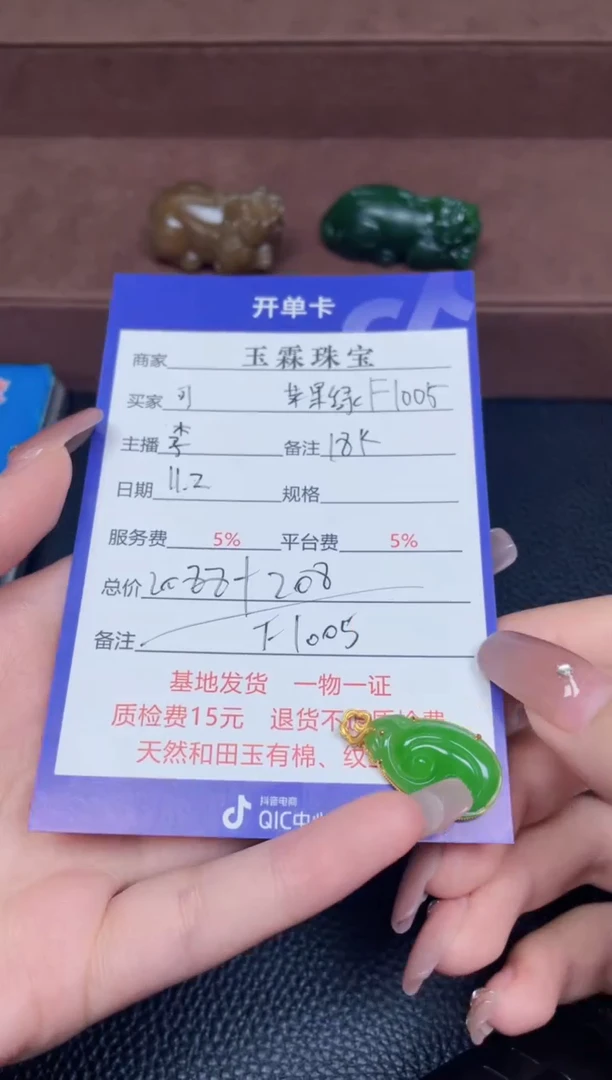 开单卡
商家 玉霖珠宝
买家 可 苹果绿F1005
主播 李 备注 18K
日期 11.2 规格
服务费 5% 平台费 5%
总价 2088+208
备注 F1005
基地发货 一物一证
质检费15元 退货不 质检费
天然和田玉有棉、纹
抖音电商
QIC中心